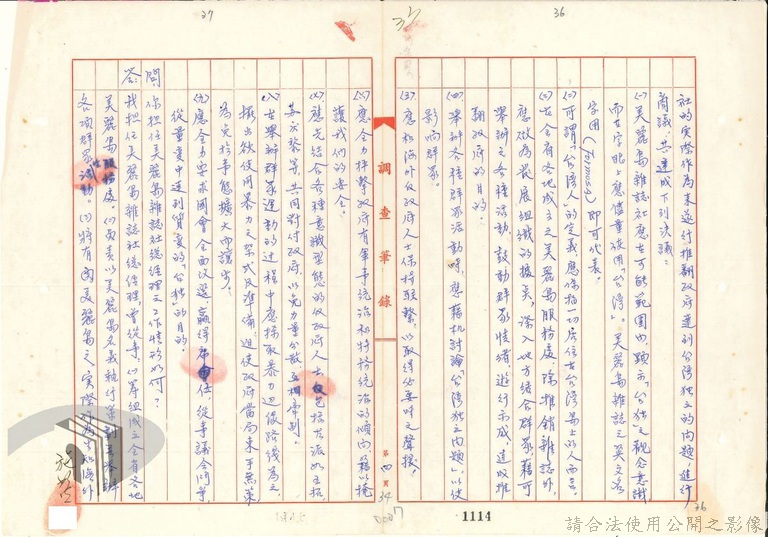 36
社的實際作為來遂行推翻政府達到台灣獨立的問題,進行
商議,共達成下列決議:
(一)美麗島雜誌社應在可能範圍內,顯示「台獨」之觀念意識
而在字眼上應儘量使用「台灣」。美麗島雜誌之英文名
字用(Formosa)即可代表。
(二)所謂「台灣人」的定義,應係指一切居住在台灣島上的人而言。
(三)在全省各地成立之美麗島服務處除推銷雜誌外,
應做為發展組織的據點,深入地方結合群眾藉可
舉辦之各種活動,鼓動群眾情緒,遊行示威,達致推
翻政府的目的。
(四)舉辦各種群眾活動時,應藉机討論「台灣獨立問題」以使
影响群眾。
(五)應和海外反政府人士保持聯繫,以取得外
之聲援。
調查筆錄
第四頁
34
1114
36
37
(六)應全力抨擊政府有軍事統治和特務統治的傾向,藉以掩
護我們的安全。
(七)應先結合各種意識型態的反政府人士包括左派如王拓、
蘇慶黎等,共同對付政府,以免力量分散互相牽制。
(八)在舉辦群眾運動的過程中應採取暴力邊緣路線為之
擺出欲使用暴力之架式及準備,迫使政府當局束手無策
為免於事態擴大而讓步。
(九)應全力要求國會全面改選,贏得席會任,從爭議會鬥爭
從量變中達到質變的「台獨」的目的。
問:你担任美麗島雜誌社總經理之工作情形如何?
答:我担任美麗島雜誌社總經理,曾從事,(1)籌組成立全省各地
美麗島服務處。(2)負責以美麗島名義執行策劃並舉辦
各項群眾活動。(3)將有関美麗島之實際
海外
請合法使用公開之影像